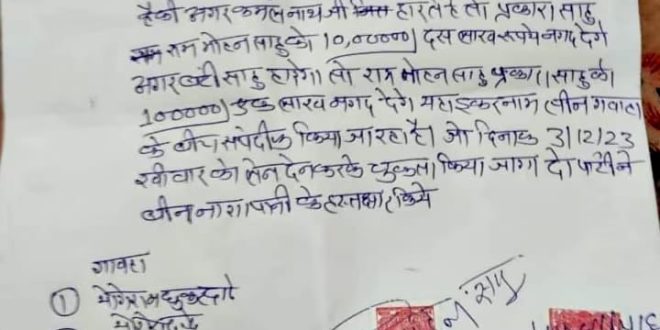 हैकी अगर कमलनाथ जी हारते है तो प्रकाश साहु
राम मोहन साहु को 10,00000/ दस लाख रूपये नगद देगे
अगर बंटी साहु हारेगा तो राम मोहन साहु प्रकाश साहु को
100000/ एक लाख नगद देगे यहा इकरनामा तीन गवाहा
के बीच किया जा रहा है। जो दिनाक 3/12/23
रवीवार को लेन देन करके चुकता किया जागा दो पाटी ने
बीन ना के हस्ताक्षर किये
गावहा
①